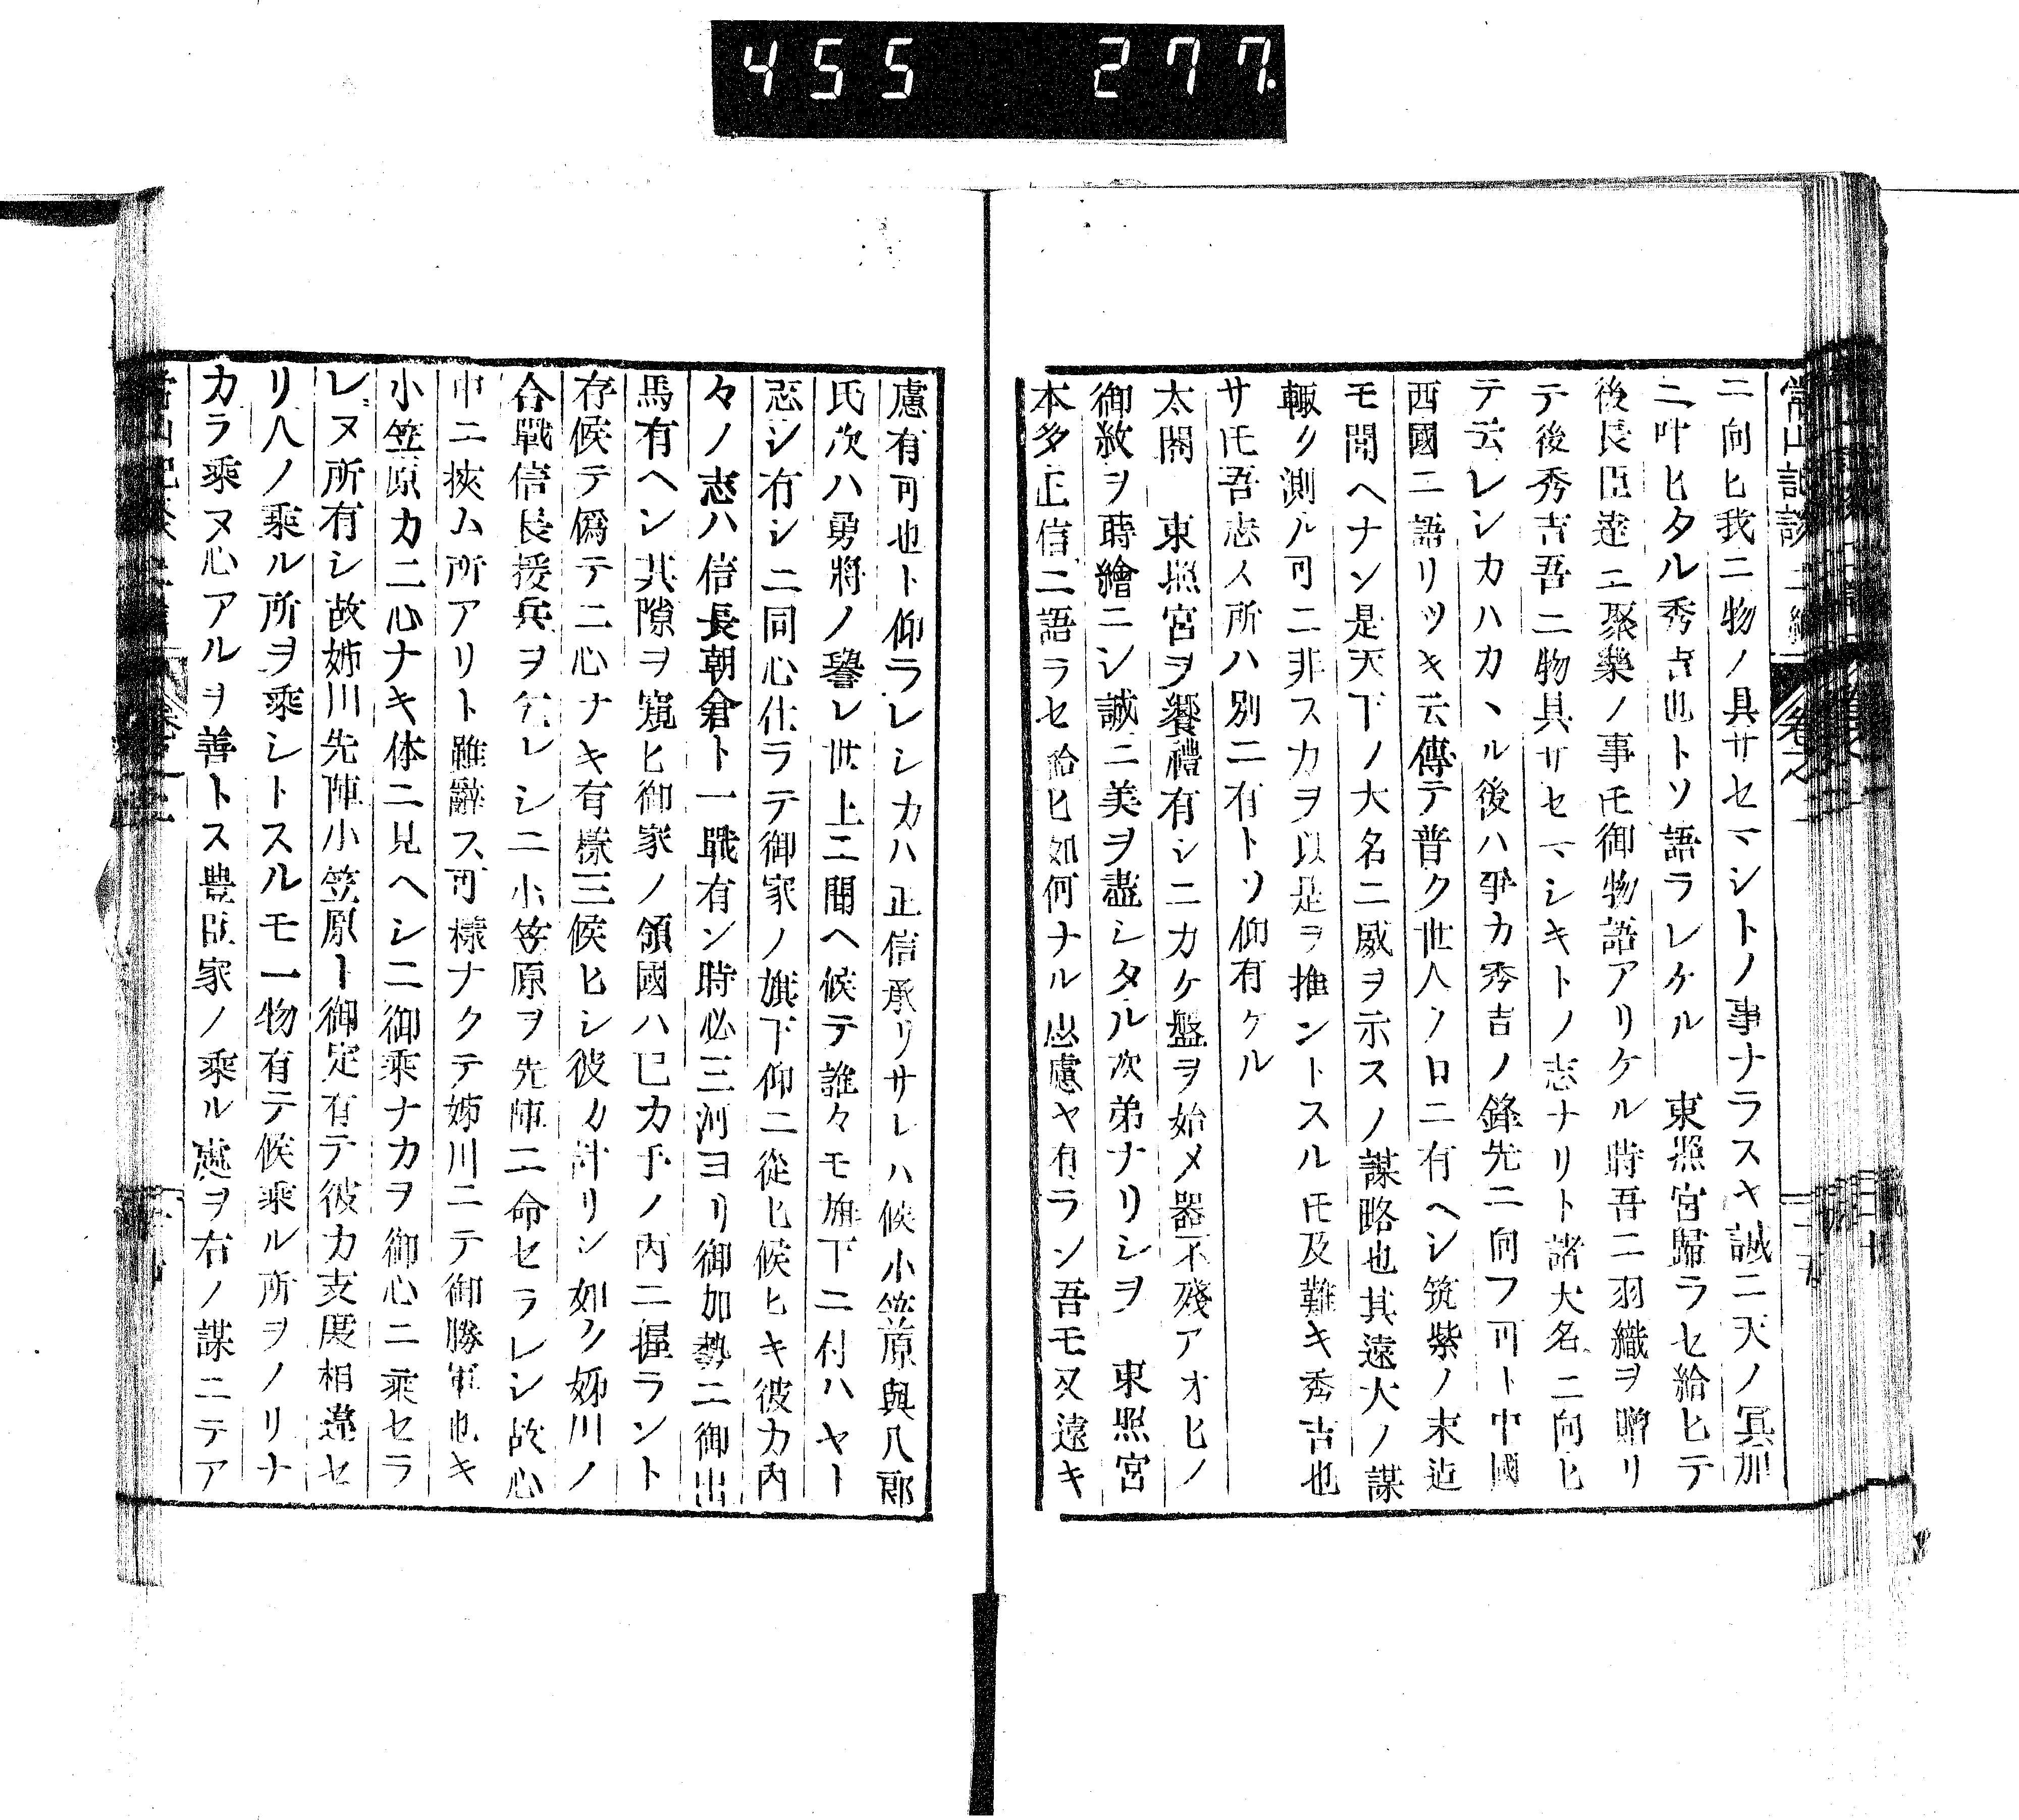 455 277
ニ向ヒ我ニ物ノ具サセマシトノ事ナラスキ誠ニ天ノ冥加
ニ叶ヒタル秀吉也トソ語ラレケル 東照宮歸ラセ給ヒテ
後長臣逹ニ聚樂ノ事𪜈御物語アリケル時吾ニ羽織ヲ贈リ
テ後秀吉吾ニ物具サセマシキトノ志ナリト諸大名ニ向ヒ
テ云レシカハカヽル後ハ爭カ秀吉ノ鋒先ニ向フ可ト中國
西國ニ語リツキ云傳テ普ク世人ノ口ニ有ヘシ筑紫ノ末迠
モ聞ヘナン是天下ノ大名ニ威ヲ示スノ謀略也其遠大ノ謀
輙ク測ル可ニ非ス力ヲ以是ヲ推ントスル𪜈及難キ秀吉也
サ𪜈吾志ス所ハ別ニ有トソ仰有ケル
太閤 東照宮ヲ饗禮有シニカケ盤ヲ始メ器不殘アオヒノ
御紋ヲ蒔繪ニシ誠ニ美ヲ盡シタル次弟ナリシヲ 東照宮
本多正信ニ語ラセ給ヒ如何ナル思慮ヤ有ラン吾モ又遠キ
慮有可也ト仰ラレシカハ正信承リサレハ候小笠原與八郎
氏次ハ勇將ノ譽レ世上ニ聞ヘ候テ誰々モ旗下ニ付ハヤト
忍シ有シニ同心仕ラテ御家ノ旗下仰ニ從ヒ候ヒキ彼カ内
々ノ志ハ信長朝倉ト一戰有ン時必三河ヨリ御加勢ニ御出
馬有ヘシ其隙ヲ窺ヒ御家ノ領國ハ已カ手ノ内ニ握ラント
存候テ僞テ二心ナキ有樣三候ヒシ彼カ計リシ如ク姊川ノ
合戰信長援兵ヲ乞レシニ小笠原ヲ先陣ニ命セラレシ故心
中ニ挾ム所アリト雖辭ス可樣ナクテ姊川ニテ御勝軍也キ
小笠原カ二心ナキ体ニ見ヘシニ御乘ナカヲ御心ニ乘セラ
レヌ所有シ故姊川先陣小笠原ト御定有テ彼カ支度相違セ
リ人ノ乘ル所ヲ乘シトスルモ一物有テ候乘ル所ヲノリナ
カラ乘ヌ心アルヲ善トス豊臣家ノ乘ル處ヲ右ノ謀ニテア